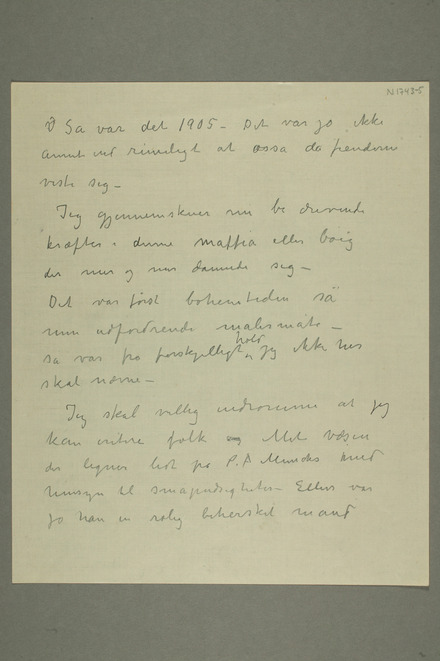 N 1743-5
Så var det 1905 – Det var jo ikke
annet end rimeligt at osså da fienderne
viste seg –
Jeg gjennemskuer nu de drevende
kræfter i denne maffia eller
der mer og mer dannede seg –
Det var først bohemtiden så
min udfordrende malermåte –
så var fra forskjelligt hold jeg ikke her
skal nævne –
Jeg skal villig indrømme at jeg
kan irritere folk og Mit væsen
der ligner lidt på P.A Munchs med
hensyn til Ellers var
jo han en rolig behersket mand